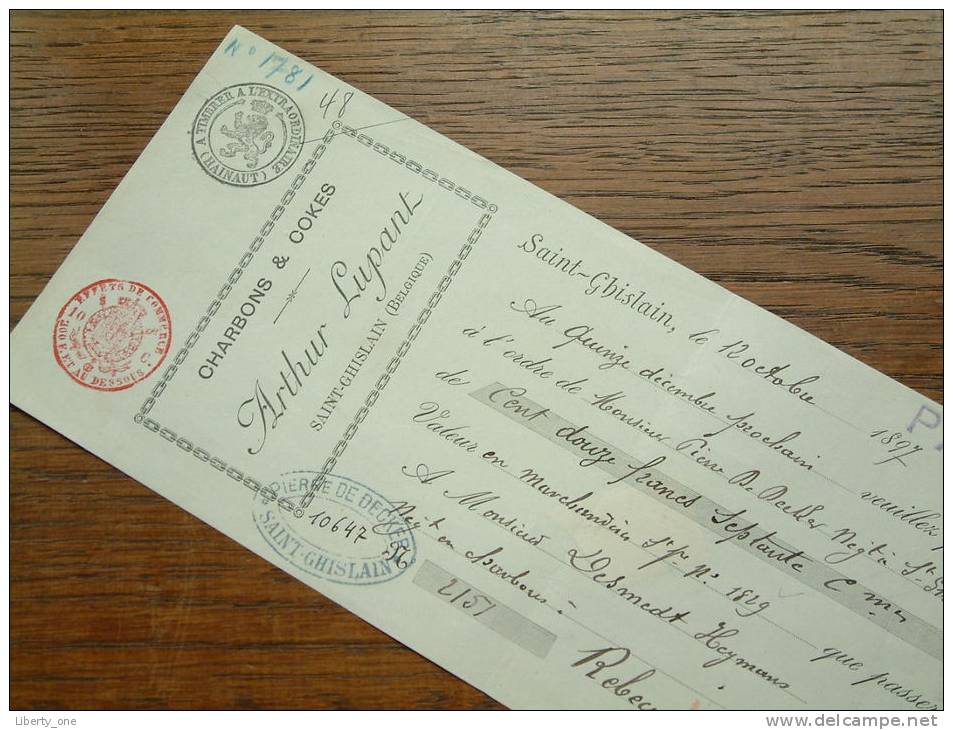 No 1781
48
A TIMBRER A L'EXTRAORDINAIRE
(HAINAUT)
EFFETS DE COMMERCE
10 C.
ET AU DESSOUS
CHARBONS & COKES
Arthur Lupant
SAINT-GHISLAIN (BELGIQUE)
PIERRE DE DECKER
10647
SAINT-GHISLAIN
Saint-Ghislain, le 12 Octobre 1897
Au Quinze décembre prochain veuillez
à l'ordre de Monsieur Pierre De Decker Negt à St
de Cent douze francs Septante Cmes
Valeur en marchandises No 1829 que passer
A Monsieur Desmedt Heymans
Negt en charbons à
2151 Rebec
Liberty_one
www.delcampe.net